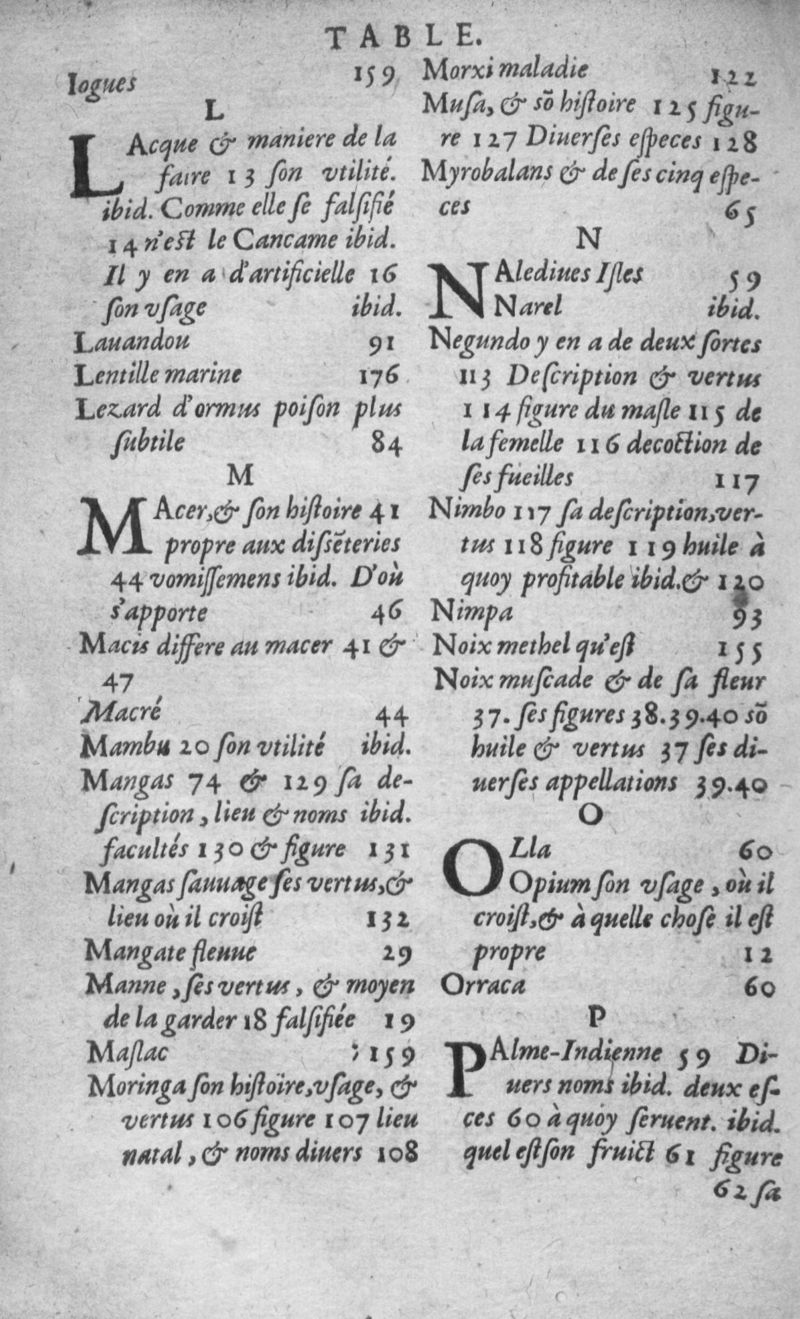 TABLE.
Iogues 159
L
LAcque & maniere de la
faire 13 ſon vtilité.
ibid. Comme elle ſe falſifié
14 n'eſt le Cancame ibid.
Il y en a d'artificielle 16
ſon vſage ibid.
Lauandou 91
Lentille marine 176
Lezard d'ormus poiſon plus
ſubtile 84
M
MAcer,& ſon hiſtoire 41
propre aux diſsēteries
44 vomiſſemens ibid. D'où
s'apporte 46
Macis differe au macer 41 &
47
Macré 44
Mambu 20 ſon vtilité ibid.
Mangas 74 & 129 ſa de-
ſcription, lieu & noms ibid.
facultés 130 & figure 131
Mangas ſauuage ſes vertus,&
lieu où il croiſt 132
Mangate fleuue 29
Manne, ſes vertus, & moyen
de la garder 18 falſifiée 19
Maſlac 159
Moringa ſon hiſtoire,vſage, &
vertus 106 figure 107 lieu
natal, & noms diuers 108
Morxi maladie 122
Muſa, & sõ hiſtoire 125 figu-
re 127 Diuerſes eſpeces 128
Myrobalans & de ſes cinq eſpe-
ces 65
N
NAlediues Iſles 59
Narel ibid.
Negundo y en a de deux ſortes
113 Deſcription & vertus
114 figure du maſle 115 de
la femelle 116 decoction de
ſes fueilles 117
Nimbo 117 ſa deſcription,ver-
tus 118 figure 119 huile à
quoy profitable ibid.& 120
Nimpa 93
Noix methel qu'eſt 155
Noix muſcade & de ſa fleur
37. ſes figures 38.39.40 sõ
huile & vertus 37 ſes di-
uerſes appellations 39.40
O
OLla 60
Opium ſon vſage, où il
croiſt,& à quelle choſe il eſt
propre 12
Orraca 60
P
PAlme-Indienne 59 Di-
uers noms ibid. deux eſ-
ces 60 à quoy ſeruent. ibid.
quel eſt ſon fruict 61 figure
62 ſa